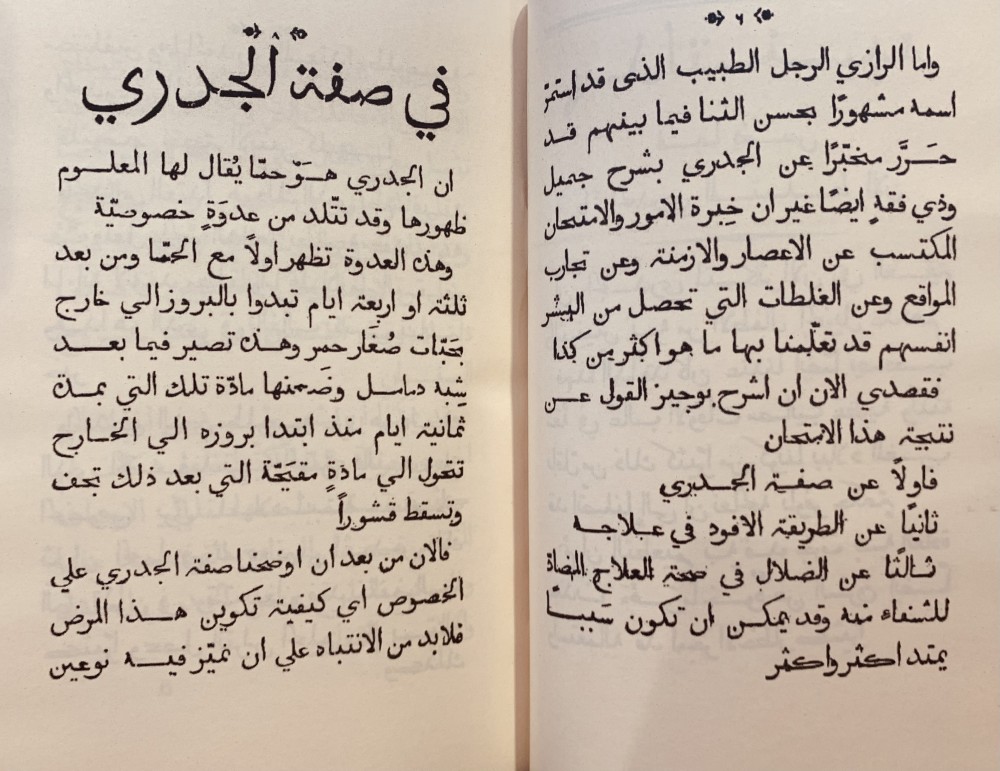 ٦
واما الرازي الرجل الطبيب الذى قد استمرّ
اسمه مشهورًا بحسن الثنا فيما بينهم قد
حَرَّر مخبّرًا عن الجدري بشرح جميل
وذي فقهٍ ايضًا غير ان خِبرة الامور والامتحان
المكتسب عن الاعصار والازمنة وعن تجارب
المواقع وعن الغلطات التي تحصل من البشر
انفسهم قد تعلّمنا بها ما هو اكثر من كذا
فقصدي الان ان اشرح بوجيز القول عن
نتيجة هذا الامتحان
فاولًا عن صفية الجدري
ثانيًا عن الطريقة الافود في علاجه
ثالثًا عن الضلال في صحة العلاج المضاة
للشفاء منه وقد يمكن ان تكون سَببًا
يمتد اكثر واكثر
٨
في صفة الجدري
ان الجدري هوَّ حمّا يُقال لها المعلوم
ظهورها وقد تتّلد من عدوَةٍ خصوصيّة
وهذه العدوة تظهر اولاً مع الحمّا ومن بعد
ثلثة او اربعة ايام تبدوا بالبروز الي خارج
بحبّات صُغار حمر وهذه تصير فيما بعد
شِبه دمامل وضَمنها مادّة تلك التي بمدة
ثمانية ايام منذ ابتدا بروزه الي الخارج
تتحول الي مادةٍ مقيّحة التي بعد ذلك تجف
وتسقط قشوراً
فالان من بعد ان اوضحنا صفة الجدري علي
الخصوص اي كيفية تكوين هذا المرض
فلابد من الانتباه علي ان نميّز فيه نوعين